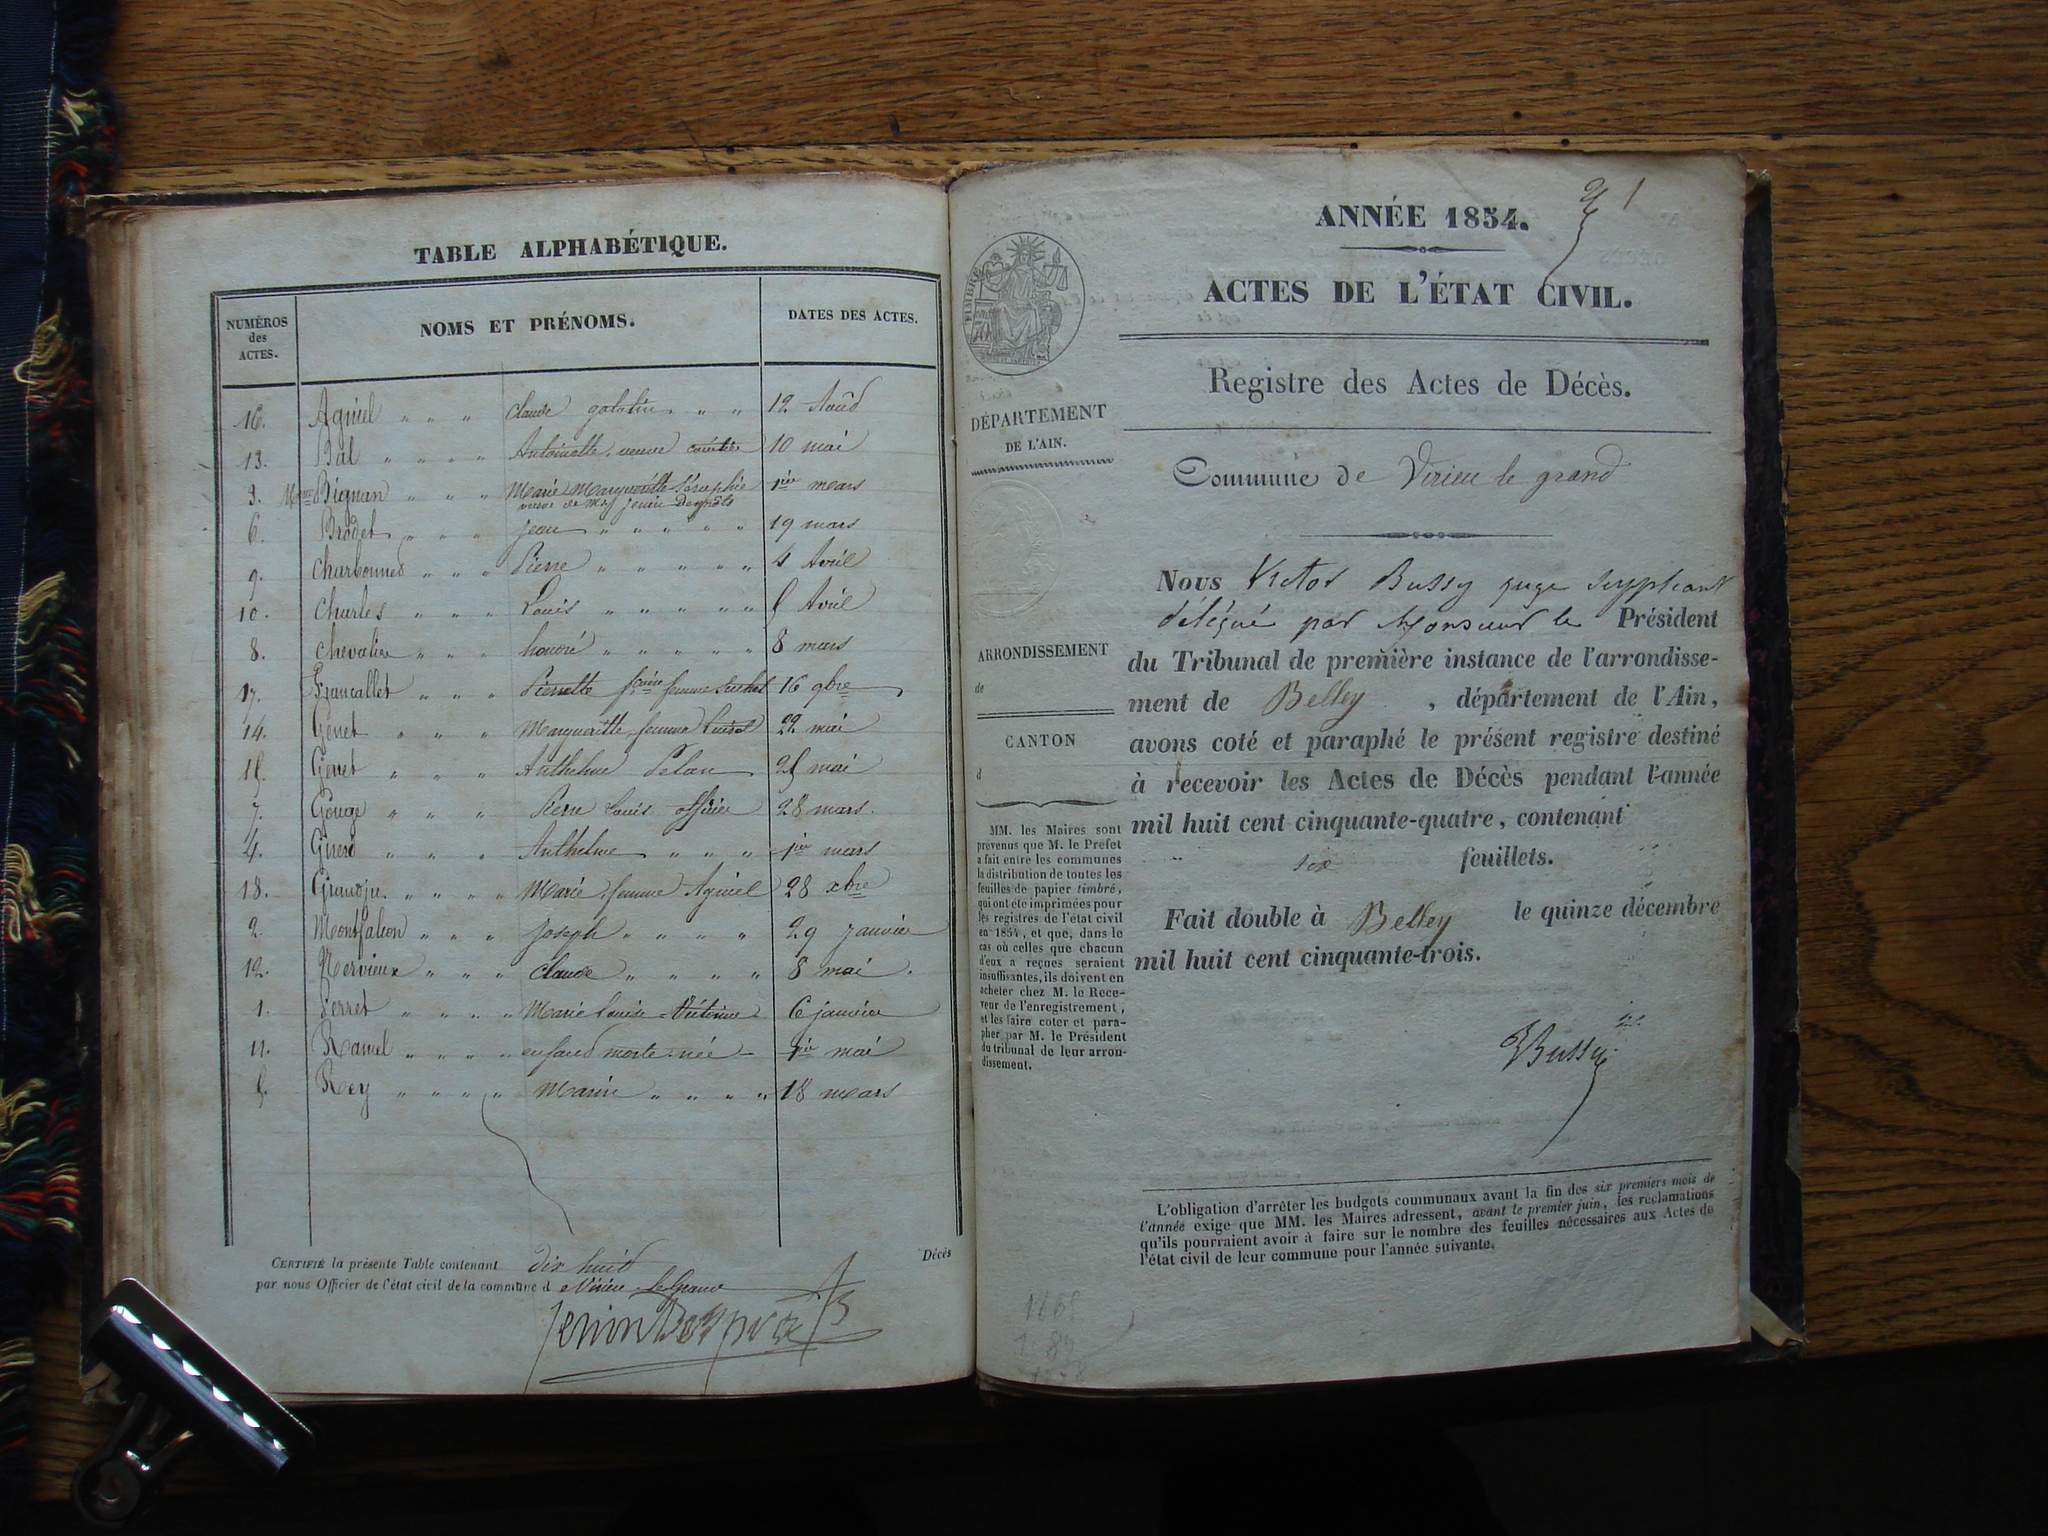 TABLE ALPHABÉTIQUE.
NUMÉROS des ACTES. NOMS ET PRÉNOMS. DATES DES ACTES.
16. Agniel " " " Claude " " 12 Août
13. Bal " " " " Antoinette, veuve 10 mai
3. Bignan " " " Marie Marguerite Séraphie 1ier mars
veuve de Mr jenin Desprots
6. Brodet " " " jean " " " " " 19 mars
9. Charbonnet " " " Pierre " " " " " 4 Avril
10. Charles " " " Louis " " " " " 5 Avril
8. Chevalier " " " honoré " " " " " 8 mars
17. Francallet " " " Pierrette femme 16 9bre
14. Genet " " " Marguerite femme 22 mai
15. Genet " " " Anthelme 25 mai
7. Gouge " " " Pierre Louis officier 28 mars.
4. Girerd " " " Anthelme " " " 1ier mars
18. " " " " Marie femme Agniel 28 xbre
2. Montfalcon " " " Joseph " " " " 29 janvier
12. Nervieux " " " Claude " " " " 8 mai.
1. Perret " " " " Marie Louise 6 janvier
11. Ramel " " " " enfant morte-née 1ier mai
5. Rey " " " " Marie " " " " 18 mars
CERTIFIÉ la présente Table contenant dix huit Décès
par nous Officier de l'état civil de la commune d Virieu le Grand
Jenin Desprots
1
ANNÉE 1854.
ACTES DE L'ÉTAT CIVIL.
Registre des Actes de Décès.
Commune de Virieu le grand
TIMBRE
DÉPARTEMENT
DE L'AIN.
ARRONDISSEMENT
de
CANTON
d
MM. les Maires sont
prévenus que M. le Préfet
a fait entre les communes
la distribution de toutes les
feuilles de papier timbré,
qui ont été imprimées pour
les registres de l'état civil
en 1854, et que, dans le
cas où celles que chacun
d'eux a reçues seraient
insuffisantes, ils doivent en
acheter chez M. le Rece-
veur de l'enregistrement,
et les faire coter et para-
pher par M. le Président
du tribunal de leur arron-
dissement.
Nous Victor Bussy juge suppléant
délégué par Monsieur le Président
du Tribunal de première instance de l'arrondisse-
ment de Belley, département de l'Ain,
avons coté et paraphé le présent registre destiné
à recevoir les Actes de Décès pendant l'année
mil huit cent cinquante-quatre, contenant
six feuillets.
Fait double à Belley le quinze décembre
mil huit cent cinquante-trois.
VBussy
L'obligation d'arrêter les budgets communaux avant la fin des six premiers mois de
l'année exige que MM. les Maires adressent, avant le premier juin, les réclamations
qu'ils pourraient avoir à faire sur le nombre des feuilles nécessaires aux Actes de
l'état civil de leur commune pour l'année suivante.